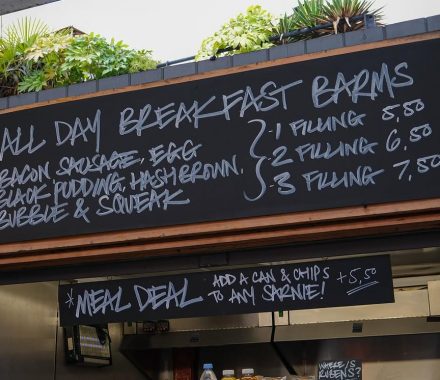 ALL DAY BREAKFAST BARMS
BACON, SAUSAGE, EGG
BLACK PUDDING, HASHBROWN,
BUBBLE & SQUEAK
-1 FILLING 5,50
-2 FILLING 6,50
-3 FILLING 7,50
*MEAL DEAL
ADD A CAN & CHIPS
TO ANY SARNIE!
+5,50
WHERE IS
RUBENS?